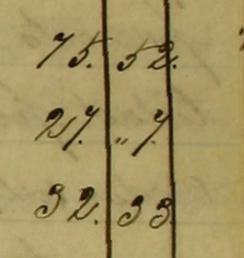 75. 52.
27. „ 7.
32. 33.